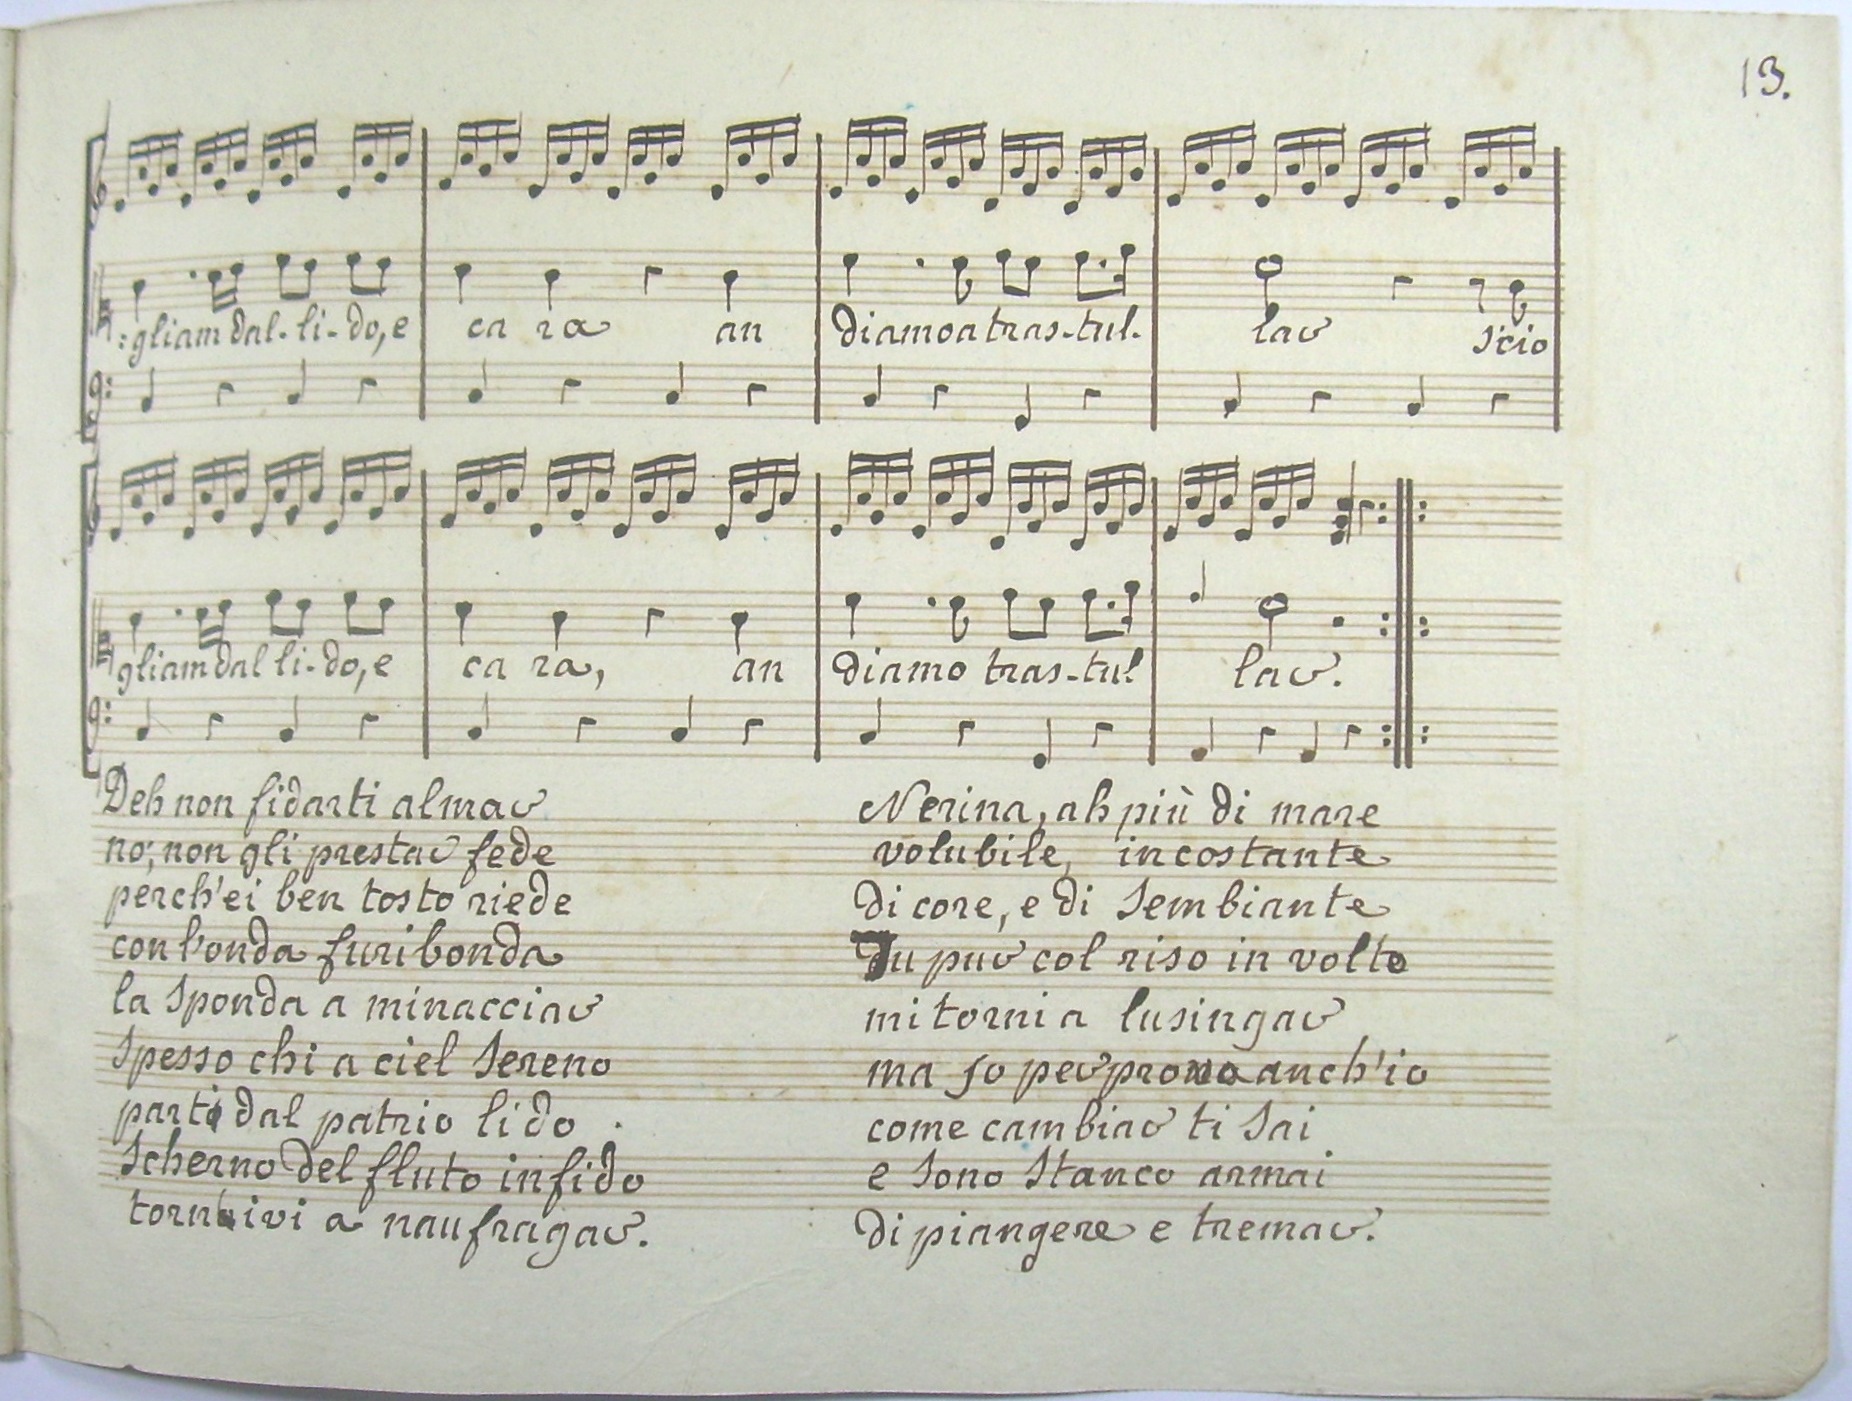 13.
:gliam dal-li-do, e ca ra an diamoa tras-tul- lar scio
gliam dal li-do, e ca ra, an diamo tras-tul lar.
Deh non fidarti almar
no; non gli prestar fede
perch'ei ben tosto riede
con l'onda furibonda
la sponda a minacciar
Spesso chi a ciel sereno
parti dal patrio lido
Scherno del fluto infido
ivi a naufragar.
Nerina, ah più di mare
volubile, incostante
di core, e di sembiante
Tu pur col riso in volto
mi torni a lusingar
ma so per prova anch'io
come cambiar ti sai
e sono stanco armai
di piangere e tremar.